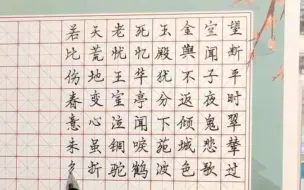 望断平时翠辇过
空闻子夜鬼悲歌
金舆不返倾城色
玉殿犹分下苑波
死忆华亭闻唳鹤
老忧王室泣铜驼
天荒地变心虽折
若比伤春意未